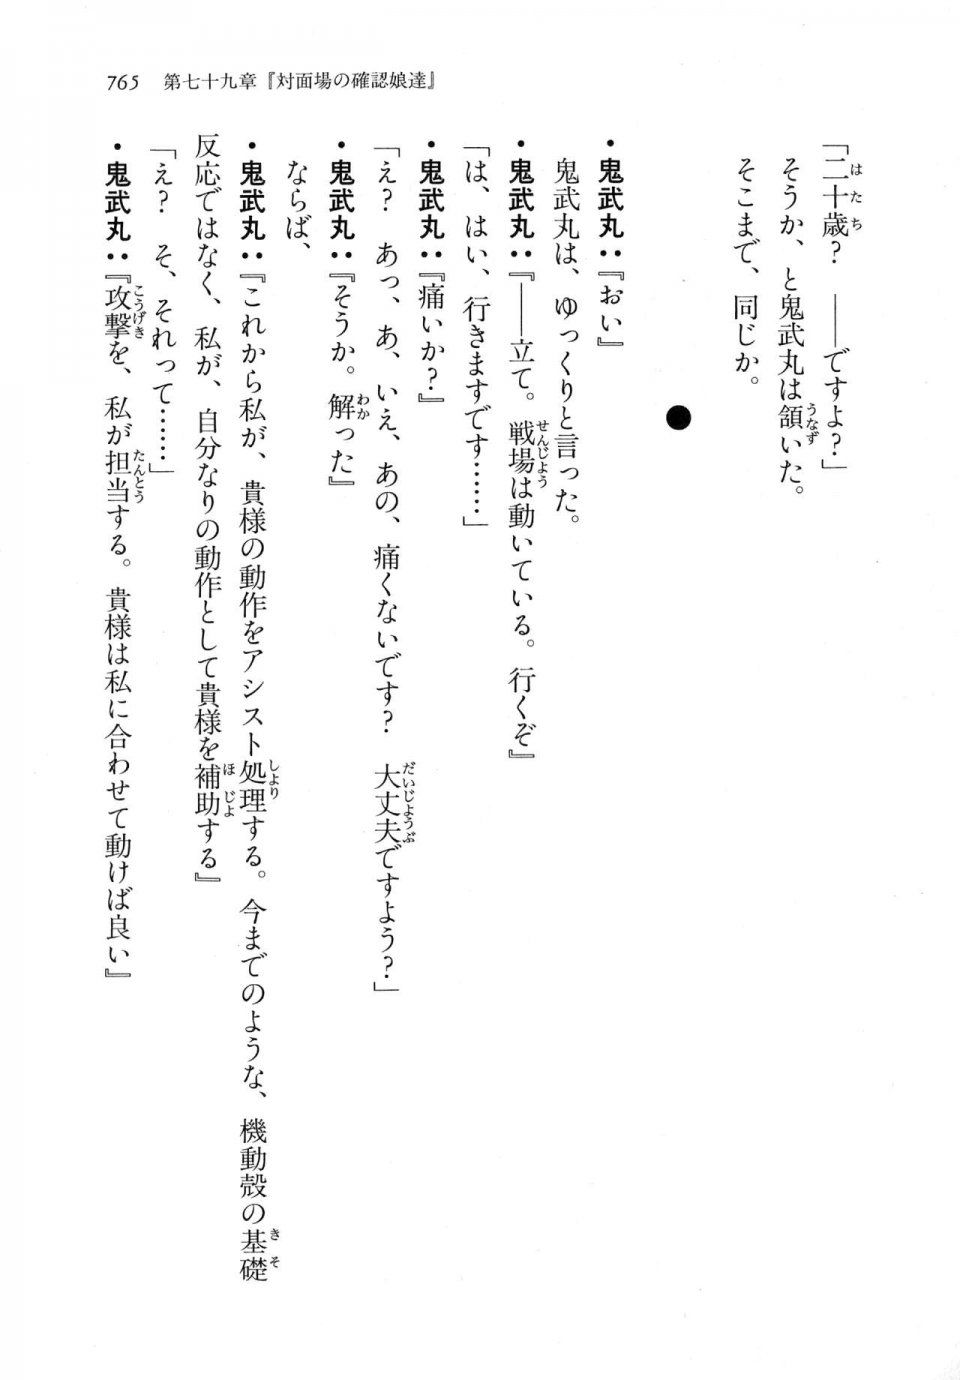 765　第七十九章『対面場の確認娘達』
「二十歳？　――ですよ？」
そうか、と鬼武丸は頷いた。
そこまで、同じか。
●
・鬼武丸：『おい』
鬼武丸は、ゆっくりと言った。
・鬼武丸：『――立て。戦場は動いている。行くぞ』
「は、はい、行きますです……」
・鬼武丸：『痛いか？』
「え？　あっ、あ、いえ、あの、痛くないです？　大丈夫ですよう？」
・鬼武丸：『そうか。解った』
ならば、
・鬼武丸：『これから私が、貴様の動作をアシスト処理する。今までのような、機動殻の基礎
反応ではなく、私が、自分なりの動作として貴様を補助する』
「え？　そ、それって……」
・鬼武丸：『攻撃を、私が担当する。貴様は私に合わせて動けば良い』